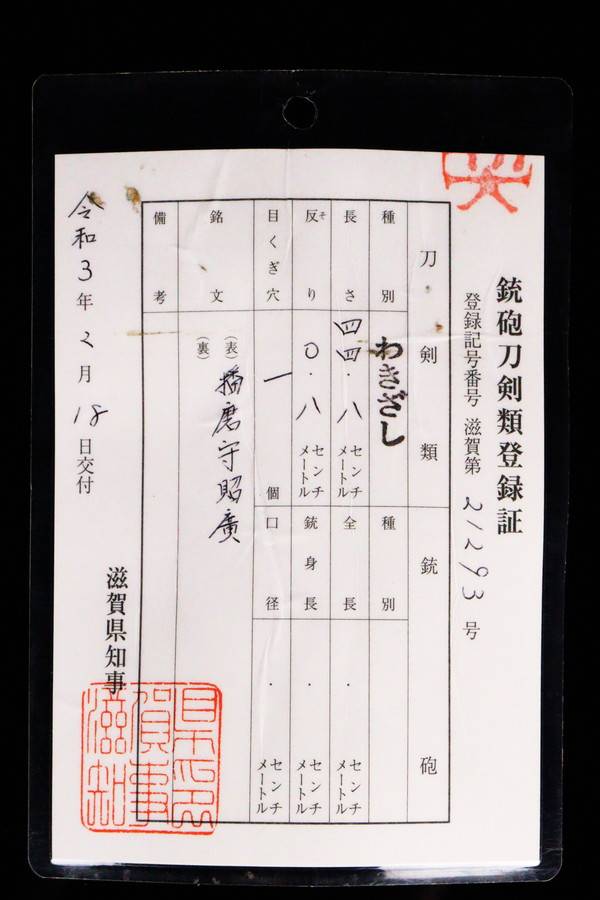 銃砲刀剣類登録証
登録記号番号 滋賀第 21293 号
刀剣類 銃砲
種別 わきざし 種別
長さ 四四・八 センチメートル 全長 ・ センチメートル
反り そ 〇・八 センチメートル 銃身長 ・ センチメートル
目くぎ穴 一 個 口径 ・ センチメートル
銘文 (表) 播磨守照廣
(裏)
備考
令和3年2月18日交付
滋賀県知事